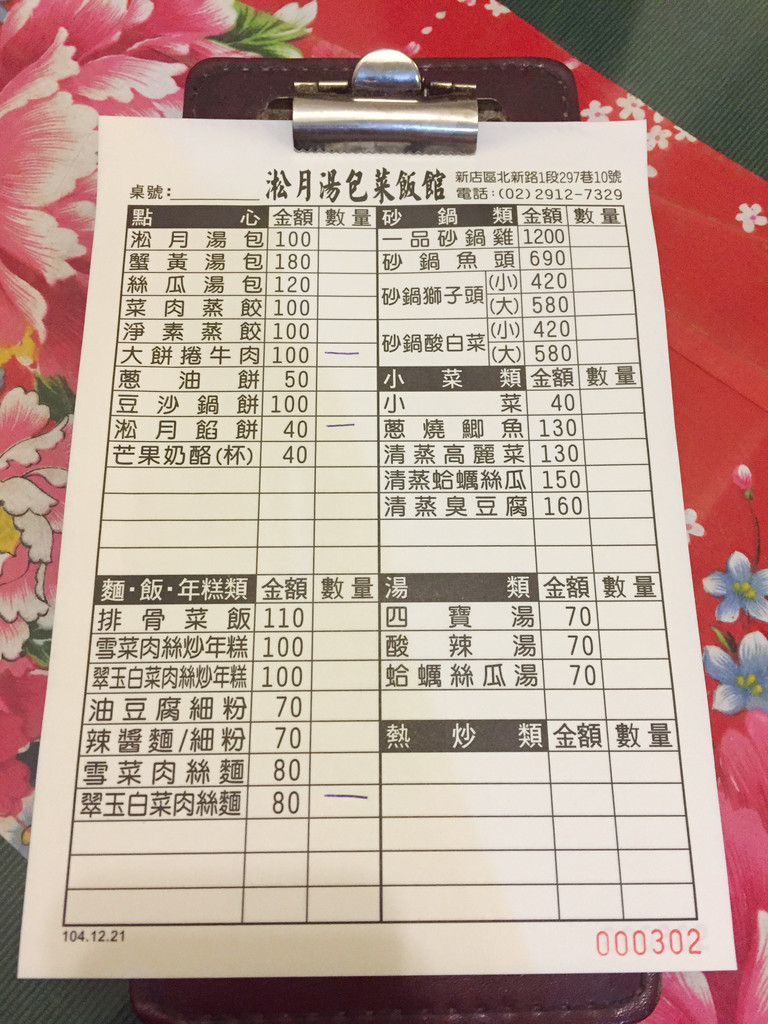 桌號:
淞月湯包菜飯館
新店區北新路1段297巷10號
電話:(02)2912-7329
點心 金額 數量
淞月湯包 100
蟹黃湯包 180
絲瓜湯包 120
菜肉蒸餃 100
淨素蒸餃 100
大餅捲牛肉 100 一
蔥油餅 50
豆沙鍋餅 100
淞月餡餅 40 一
芒果奶酪(杯) 40
麵·飯·年糕類 金額 數量
排骨菜飯 110
雪菜肉絲炒年糕 100
翠玉白菜肉絲炒年糕 100
油豆腐細粉 70
辣醬麵/細粉 70
雪菜肉絲麵 80
翠玉白菜肉絲麵 80 一
砂鍋類 金額 數量
一品砂鍋雞 1200
砂鍋魚頭 690
砂鍋獅子頭 (小) 420
(大) 580
砂鍋酸白菜 (小) 420
(大) 580
小菜類 金額 數量
小菜 40
蔥燒鯽魚 130
清蒸高麗菜 130
清蒸蛤蠣絲瓜 150
清蒸臭豆腐 160
湯類 金額 數量
四寶湯 70
酸辣湯 70
蛤蠣絲瓜湯 70
熱炒類 金額 數量
104.12.21
000302